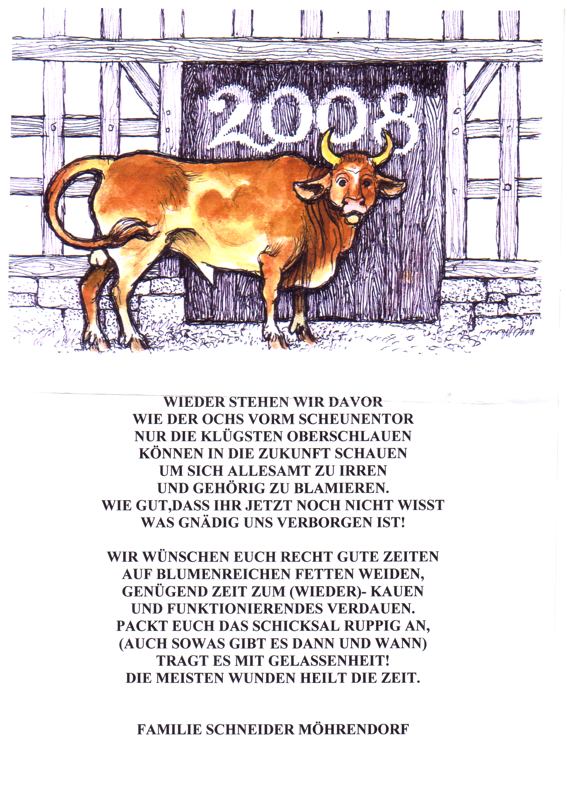 2008
WIEDER STEHEN WIR DAVOR
WIE DER OCHS VORM SCHEUNENTOR
NUR DIE KLÜGSTEN OBERSCHLAUEN
KÖNNEN IN DIE ZUKUNFT SCHAUEN
UM SICH ALLESAMT ZU IRREN
UND GEHÖRIG ZU BLAMIEREN.
WIE GUT,DASS IHR JETZT NOCH NICHT WISST
WAS GNÄDIG UNS VERBORGEN IST!
WIR WÜNSCHEN EUCH RECHT GUTE ZEITEN
AUF BLUMENREICHEN FETTEN WEIDEN,
GENÜGEND ZEIT ZUM (WIEDER)- KAUEN
UND FUNKTIONIERENDES VERDAUEN.
PACKT EUCH DAS SCHICKSAL RUPPIG AN,
(AUCH SOWAS GIBT ES DANN UND WANN)
TRAGT ES MIT GELASSENHEIT!
DIE MEISTEN WUNDEN HEILT DIE ZEIT.
FAMILIE SCHNEIDER MÖHRENDORF